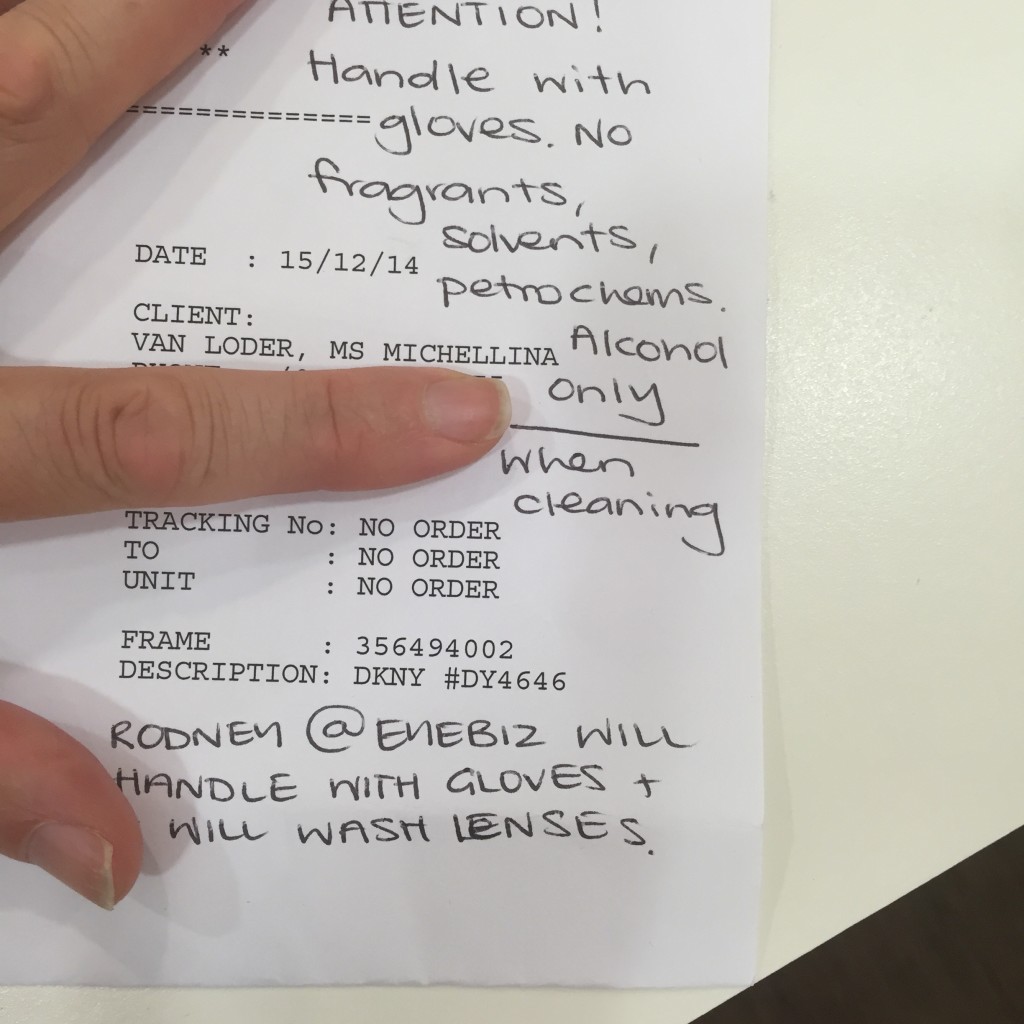 ATTENTION!
**
Handle with
==============
gloves. No
fragrants,
solvents,
DATE : 15/12/14
petrochems.
CLIENT:
VAN LODER, MS MICHELLINA
Alconol
only
when
cleaning
TRACKING No: NO ORDER
TO : NO ORDER
UNIT : NO ORDER
FRAME : 356494002
DESCRIPTION: DKNY #DY4646
RODNEY @ EYEBIZ WILL
HANDLE WITH GLOVES +
WILL WASH LENSES.